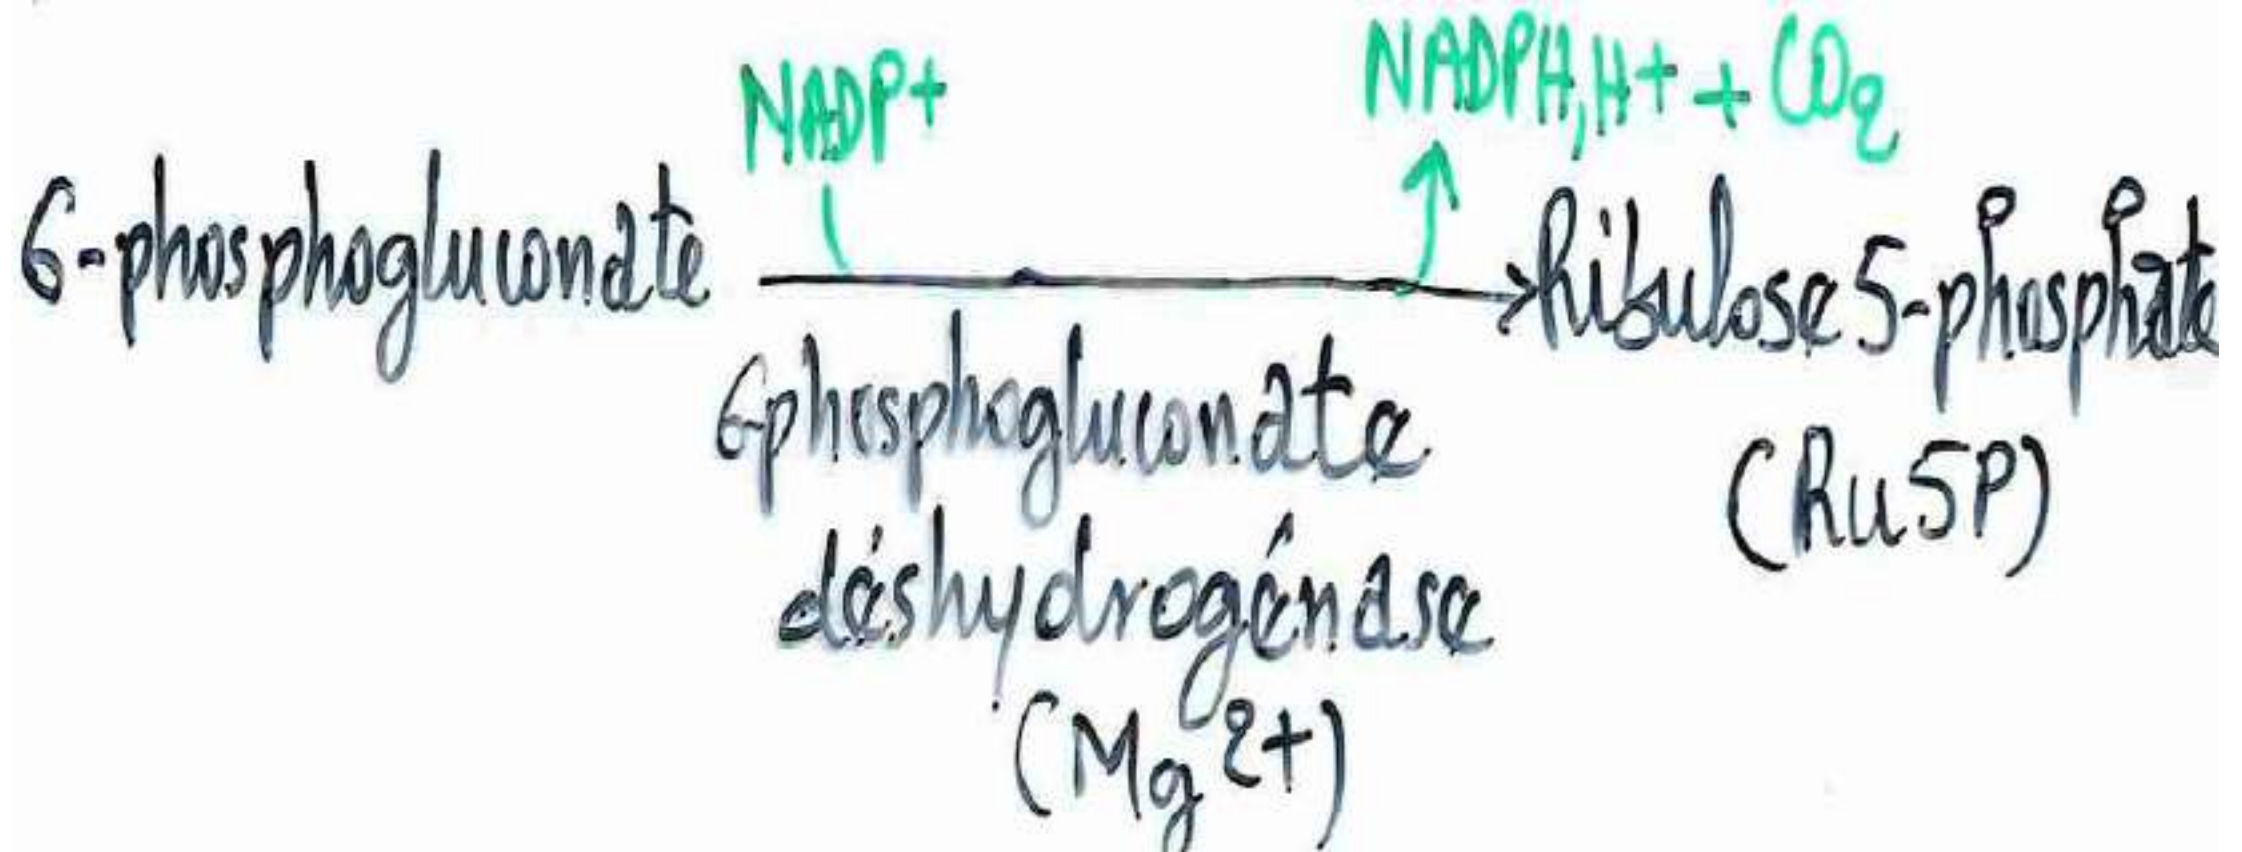 NADP+
NADPH,H+ + CO2
6-phosphogluconate
Ribulose 5-phosphate
(Ru5P)
6-phosphogluconate
déshydrogénase
(Mg2+)